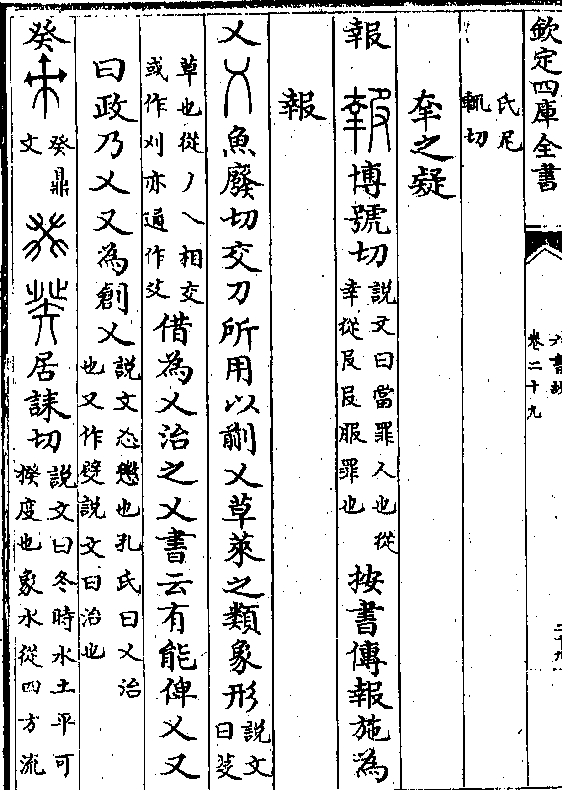 欽定四庫全書
六書故
卷二十九
氏尼輒切
㚔之疑
報 博號切說文曰當罪人也從㚔從𠬝𠬝服罪也按書傳報施為
報
乂 魚廢切交刀所用以剬乂草萊之類象形說文曰芟
草也從丿乀相交或作刈亦通作艾借為乂治之乂書云有能俾乂又
曰政乃乂又為創乂說文㣻懲也孔氏曰乂治也又作嬖說文曰治也
癸 癸鼎文 居誄切說文曰冬時水土平可揆度也象水從四方流